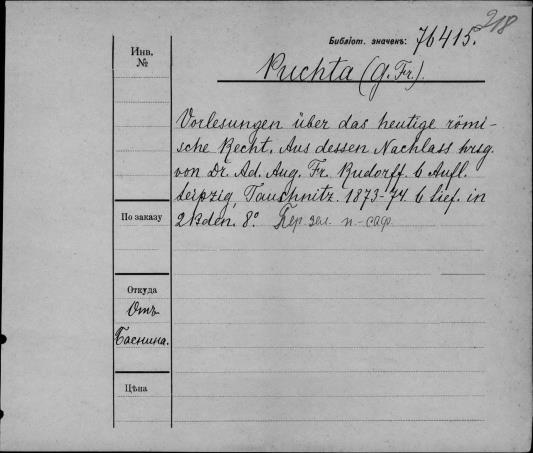 218
Библіот. значекъ: 76415.
Инв.
№
Puchta (G. Fr.).
Vorlesungen über das heutige römi-
sche Recht. Aus dessen Nachlass hrsg.
von Dr. Ad. Aug. Fr. Rudorff. 6 Aufl.
Leipzig, Tauchnitz. 1873-74. 6 Lief. in
2 Bden. 8º. Пер. зел. п.-саф.
По заказу
Откуда
Отъ
Баснина.
Цѣна